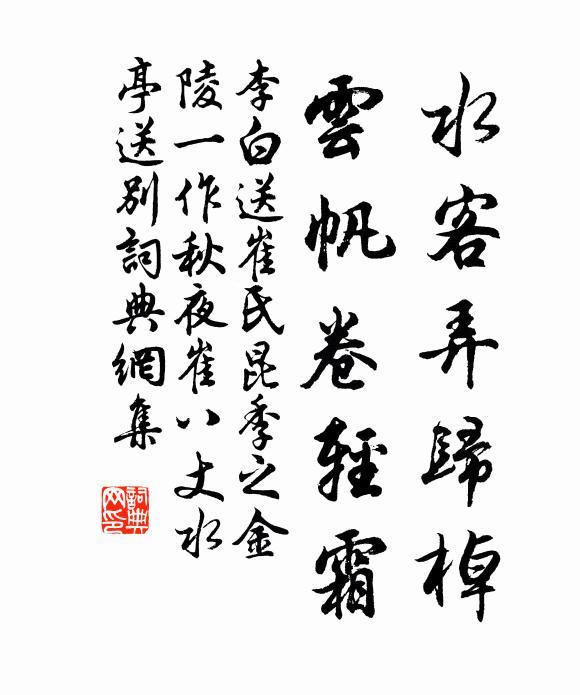 水客弄歸棹
雲帆卷輕霜
李白送崔氏昆季之金
陵一作秋夜崔八丈水
亭送別詞典網集
詞典
网印